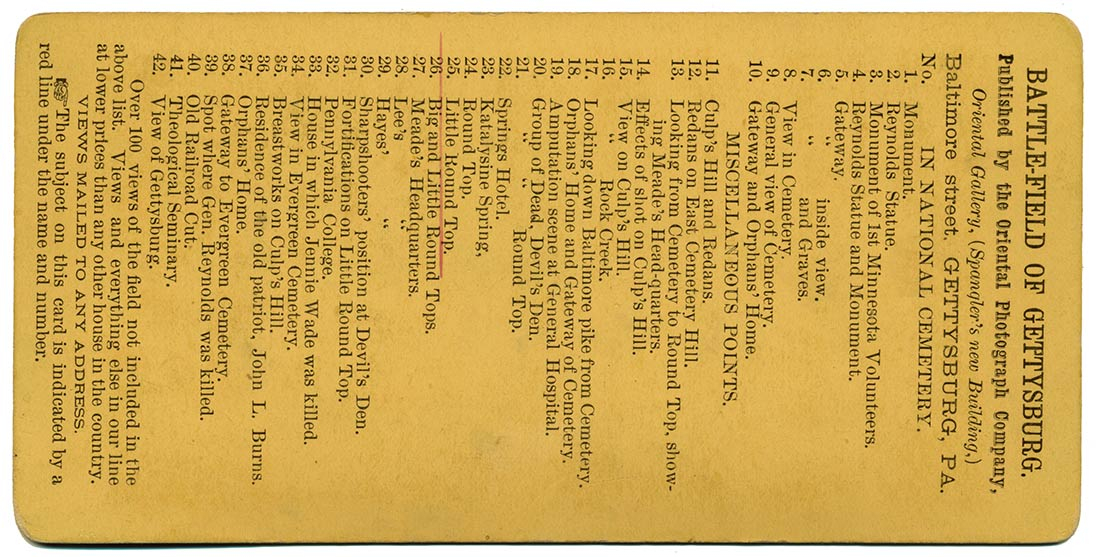 BATTLE-FIELD OF GETTYSBURG.
Published by the Oriental Photograph Company,
Oriental Gallery, (Spangler's new Building,)
Baltimore street, GETTYSBURG, PA.
No. IN NATIONAL CEMETERY.
1. Monument.
2. Reynolds Statue.
3. Monument of 1st Minnesota Volunteers.
4. Reynolds Statue and Monument.
5. Gateway.
6. " inside view.
7. " and Graves.
8. View in Cemetery.
9. General view of Cemetery.
10. Gateway and Orphans' Home.
MISCELLANEOUS POINTS.
11. Culp's Hill and Redans.
12. Redans on East Cemetery Hill.
13. Looking from Cemetery to Round Top, show-
ing Meade's Head-quarters.
14. Effects of shot on Culp's Hill.
15. View on Culp's Hill.
16. " Rock Creek.
17. Looking down Baltimore pike from Cemetery.
18. Orphans' Home and Gateway of Cemetery.
19. Amputation scene at General Hospital.
20. Group of Dead, Devil's Den.
21. " " Round Top.
22. Springs Hotel.
23. Katalysine Spring,
24. Round Top.
25. Little Round Top.
26. Big and Little Round Tops.
27. Meade's Headquarters.
28. Lee's "
29. Hayes' "
30. Sharpshooters' position at Devil's Den.
31. Fortifications on Little Round Top.
32. Pennylvania College.
33. House in which Jennie Wade was killed.
34. View in Evergreen Cemetery.
35. Breastworks on Culp's Hill.
36. Residence of the old patriot, John L. Burns.
37. Orphans' Home.
38. Gateway to Evergreen Cemetery.
39. Spot where Gen. Reynolds was killed.
40. Old Railroad Cut.
41. Theological Seminary.
42. View of Gettysburg.
Over 100 views of the field not included in the
above list. Views and everything else in our line
at lower prices than any other house in the country.
VIEWS MAILED TO ANY ADDRESS.
☞The subject on this card is indicated by a
red line under the name and number.